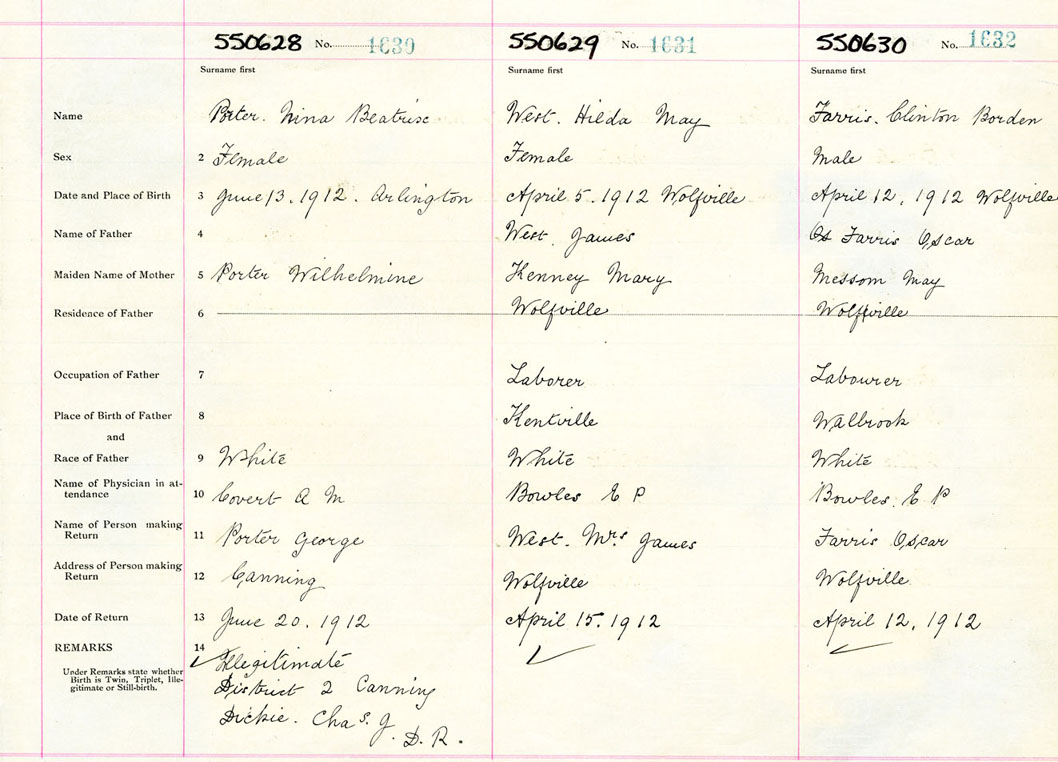 550628 No. 1630 550629 No. 1631 550630 No. 1632
Surname first Surname first Surname first
Name Porter. Nina Beatrice West. Hilda May Farris. Clinton Borden
Sex 2 Female Female Male
Date and Place of Birth 3 June 13. 1912. Arlington April 5. 1912 Wolfville April 12, 1912 Wolfville
Name of Father 4 West. James Os Farris Oscar
Maiden Name of Mother 5 Porter Wilhelmine Kenney Mary Messom May
Residence of Father 6 Wolfville Wolfville
Occupation of Father 7 Laborer Labourer
Place of Birth of Father 8 Kentville Walbrook
and
Race of Father 9 White White White
Name of Physician in at-
tendance 10 Covert A M Bowles E P Bowles. E P
Name of Person making
Return 11 Porter George West. Mrs James Farris Oscar
Address of Person making
Return 12 Canning Wolfville Wolfville
Date of Return 13 June 20. 1912 April 15. 1912 April 12, 1912
REMARKS 14 Illegitimate
Under Remarks state whether
Birth is Twin, Triplet, Ille-
gitimate or Still-birth.
District 2 Canning
Dickie. Chas. J.
D. R.